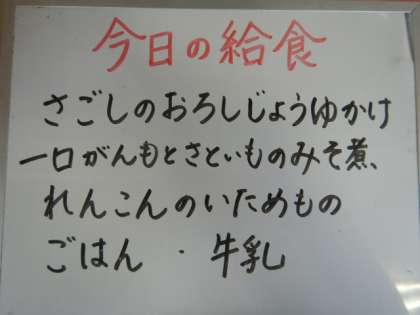 今日の給食
さごしのおろしじょうゆかけ
一口がんもとさといものみそ煮、
れんこんのいためもの
ごはん ・ 牛乳